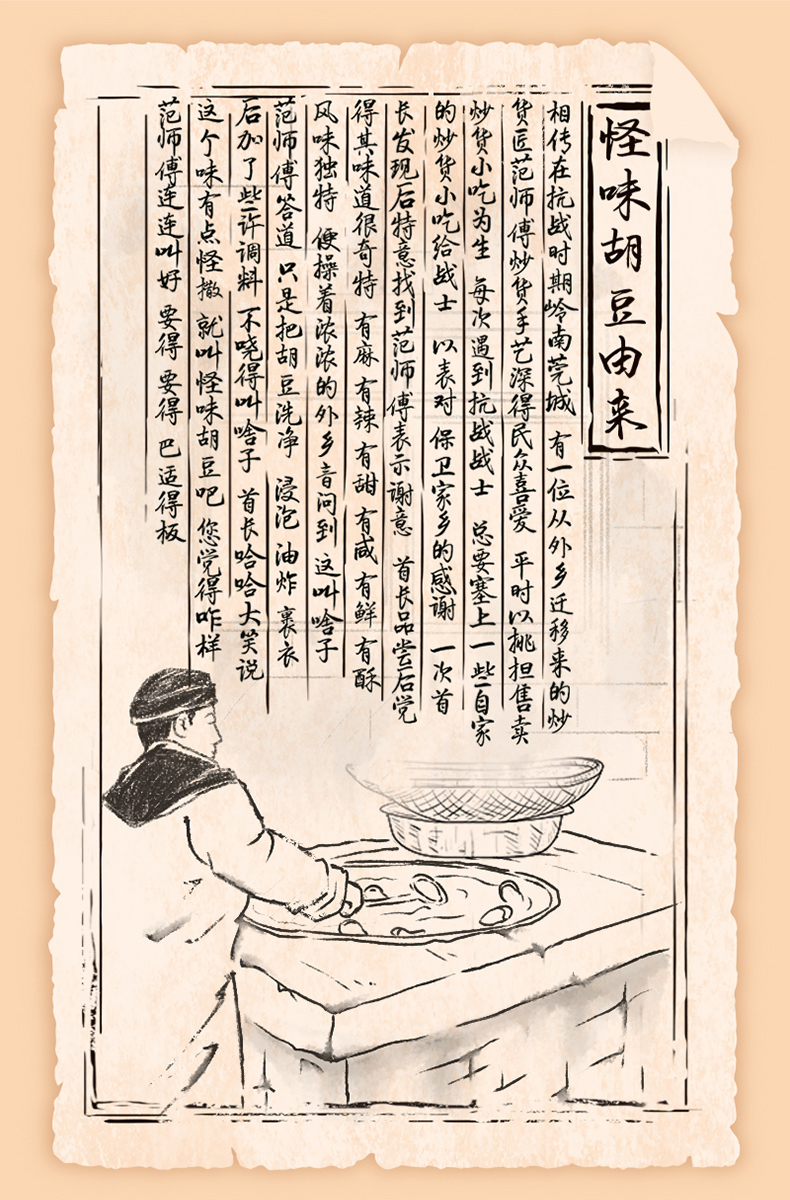 怪味胡豆由来
相传在抗战时期岭南莞城 有一位从外乡迁移来的炒
货匠范师傅炒货手艺深得民众喜爱 平时以挑担售卖
炒货小吃为生 每次遇到抗战战士 总要塞上一些自家
的炒货小吃给战士 以表对 保卫家乡的感谢 一次首
长发现后特意找到范师傅表示谢意 首长品尝后觉
得其味道很奇特 有麻 有辣 有甜 有咸 有鲜 有酥
风味独特 便操着浓浓的外乡音问到 这叫啥子
范师傅答道 只是把胡豆洗净 浸泡 油炸 裹衣
后加了些许调料 不晓得叫啥子 首长哈哈大笑说
这个味有点怪撒 就叫怪味胡豆吧 您觉得咋样
范师傅连连叫好 要得 要得 巴适得板